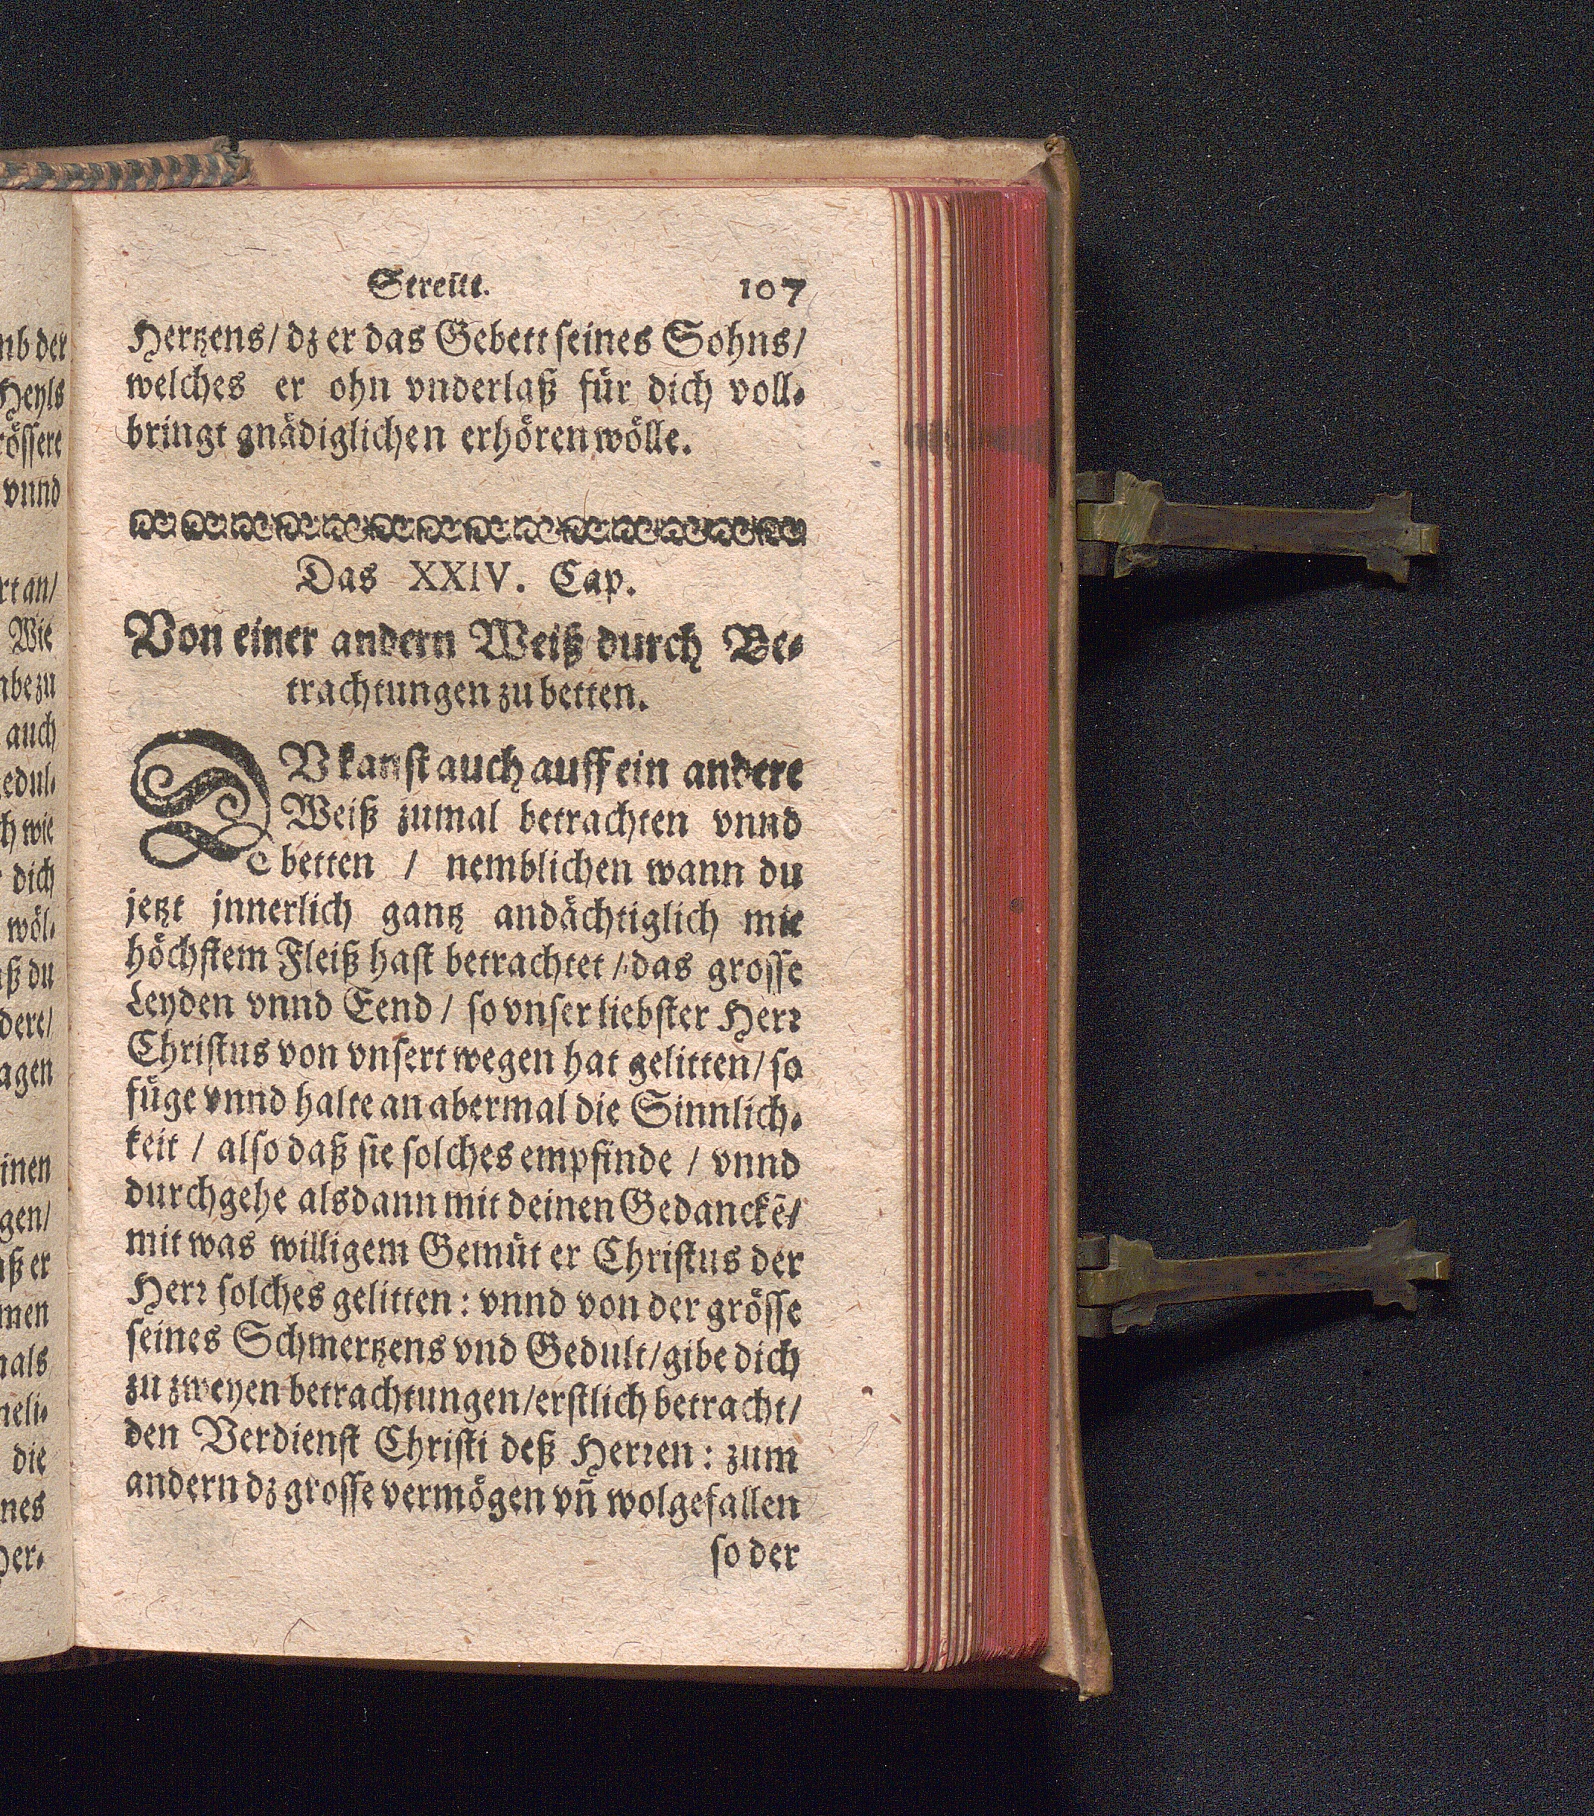 Streitt. 107
Hertzens/ dz er das Gebett seines Sohns/
welches er ohn vnderlaß für dich voll-
bringt gnädiglichen erhören wölle.
Das XXIV. Cap.
Von einer andern Weiß durch Be-
trachtungen zu betten.
DV kanst auch auff ein andere
Weiß zumal betrachten vnnd
betten / nemblichen wann du
jetzt jnnerlich gantz andächtiglich mit
höchstem Fleiß hast betrachtet / das grosse
Leyden vnnd Eend / so vnser liebster Herr
Christus von vnsert wegen hat gelitten/ so
füge vnnd halte an abermal die Sinnlich-
keit / also daß sie solches empfinde / vnnd
durchgehe alsdann mit deinen Gedanckẽ/
mit was willigem Gemüt er Christus der
Herr solches gelitten: vnnd von der grösse
seines Schmertzens vnd Gedult/ gibe dich
zu zweyen betrachtungen/ erstlich betracht/
den Verdienst Christi deß Herren: zum
andern dz grosse vermögen vñ wolgefallen
so der
nb der
Heyls
rössere
vnnd
rt an/
Wie
nbe zu
auch
edul-
h wie
dich
wöl-
aß du
dere/
agen
inen
gen/
aß er
men
nals
neli-
die
nes
Her-